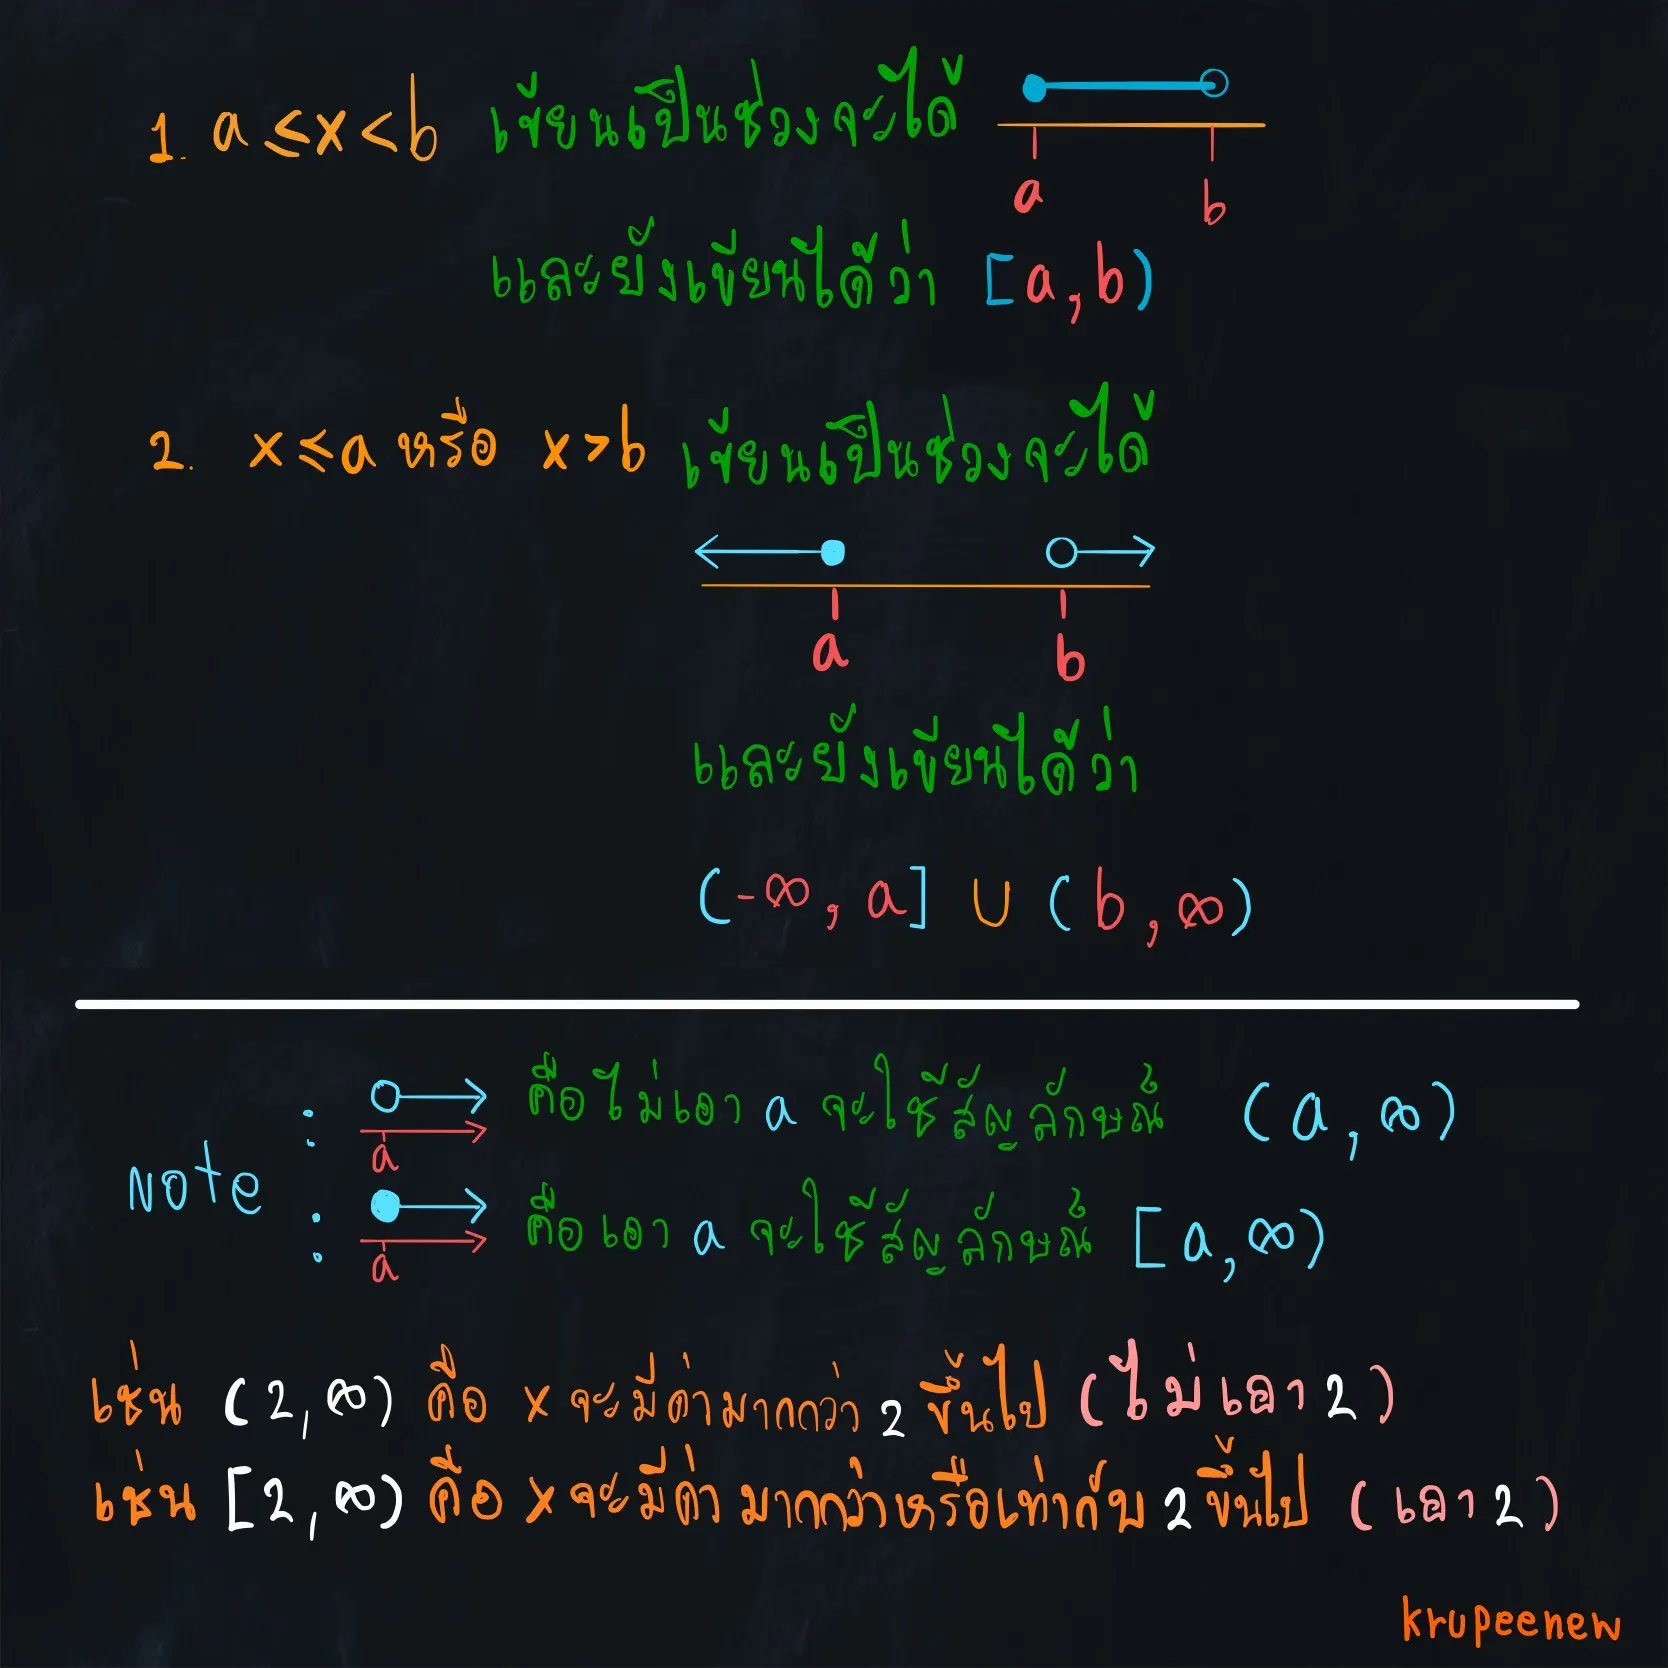 1. a ≤ x < b เขียนเป็นช่วงจะได้
a b
และยังเขียนได้ว่า [a, b)
2. x ≤ a หรือ x > b เขียนเป็นช่วงจะได้
a b
และยังเขียนได้ว่า
(-∞, a] ∪ (b, ∞)
Note : a คือไม่เอา a จะใช้สัญลักษณ์ (a, ∞)
: a คือเอา a จะใช้สัญลักษณ์ [a, ∞)
เช่น (2, ∞) คือ x จะมีค่ามากกว่า 2 ขึ้นไป (ไม่เอา 2)
เช่น [2, ∞) คือ x จะมีค่ามากกว่าหรือเท่ากับ 2 ขึ้นไป (เอา 2)
krupeenew